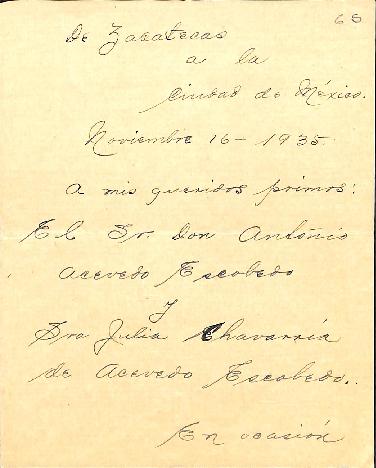 68
De Zacatecas
a la
ciudad de México.
Noviembre 16-1935.
A mis queridos primos:
El Sr. Don Antonio
Acevedo Escobedo
Y
Sra Julia Chavarría
de Acevedo Escobedo.
En ocasión